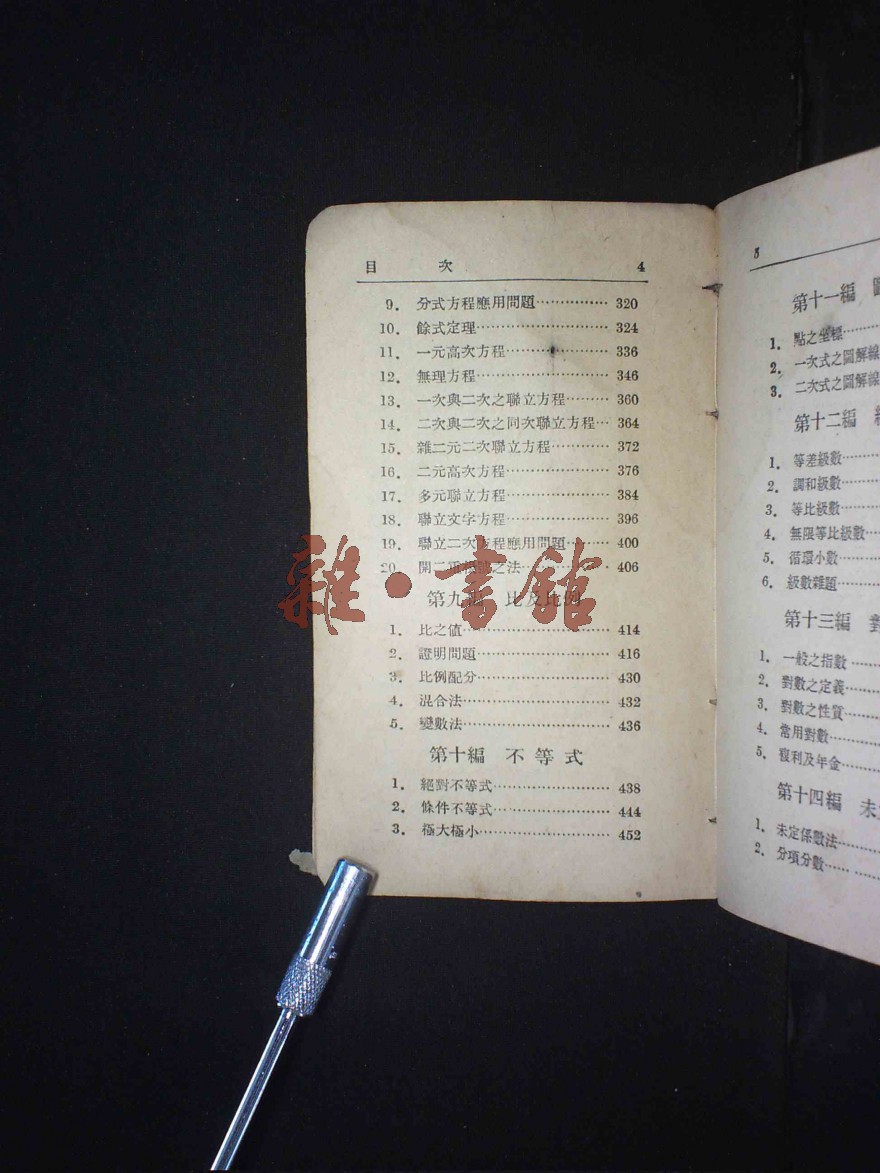 目 次 4
9. 分式方程應用問題…………… 320
10. 餘式定理……………………… 324
11. 一元高次方程………………… 336
12. 無理方程……………………… 346
13. 一次與二次之聯立方程……… 360
14. 二次與二次之同次聯立方程… 364
15. 雜二元二次聯立方程………… 372
16. 二元高次方程………………… 376
17. 多元聯立方程………………… 384
18. 聯立文字方程………………… 396
19. 聯立二次方程應用問題……… 400
20. 開二重根號之法……………… 406
第九編 比及比例
1. 比之値………………………… 414
2. 證明問題……………………… 416
3. 比例配分……………………… 430
4. 混合法………………………… 432
5. 變數法………………………… 436
第十編 不等式
1. 絕對不等式…………………… 438
2. 條件不等式…………………… 444
3. 極大極小……………………… 452
雜·書館
5
第十一編
1. 點之坐標………
2. 一次式之圖解線
3. 二次式之圖解線
第十二編
1. 等差級數………
2. 調和級數………
3. 等比級數………
4. 無限等比級數…
5. 循環小數………
6. 級數雜題………
第十三編
1. 一般之指數……
2. 對數之定義……
3. 對數之性質……
4. 常用對數………
5. 複利及年金……
第十四編 未
1. 未定係數法……
2. 分項分數………